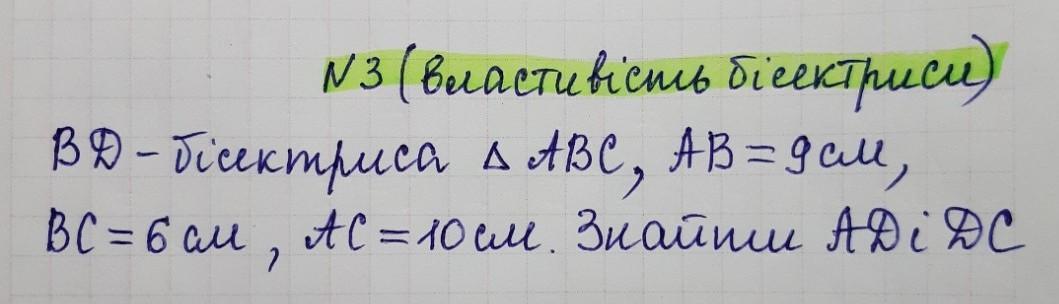 N3 (Властивість бісектриси)
BD - бісектриса △ ABC, AB = 9 см,
BC = 6 см, AC = 10 см. Знайти AD і DC